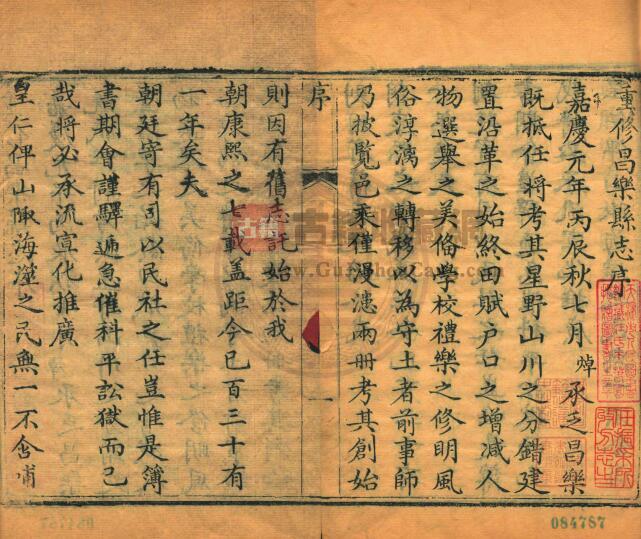 重修昌樂縣志序
嘉慶元年丙辰秋七月焯承乏昌樂
既抵任將考其星野山川之分錯建
置沿革之始終田賦戶口之增減人
物選舉之美備學校禮樂之修明風
俗淳漓之轉移以為守土者前事師
乃披覽邑乘僅漫漶兩冊考其創始
序
一
則因有舊志託始於我
朝康熙之七載蓋距今已百三十有
一年矣夫
朝廷寄有司以民社之任豈惟是簿
書期會謹驛遞急催科平訟獄而已
哉將必承流宣化推廣
皇仁俾山陬海澨之民無一不含哺
084787